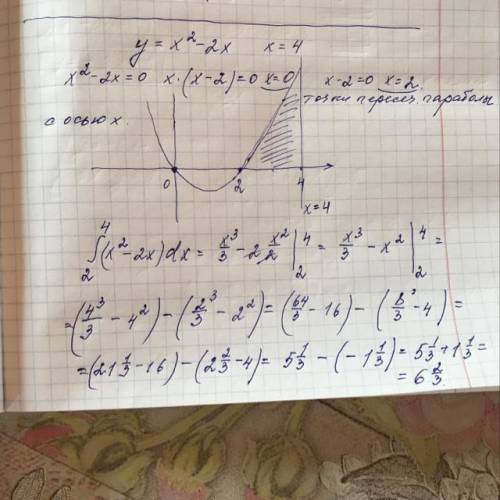 y = x² - 2x   x = 4
x² - 2x = 0   x · (x - 2) = 0   x = 0   x - 2 = 0   x = 2
точки пересеч. параболы
с осью x.
0   2   4
x = 4
∫₂⁴ (x² - 2x) dx = x³/3 - 2 x²/2 |₂⁴ = x³/3 - x² |₂⁴ =
= (4³/3 - 4²) - (2³/3 - 2²) = (64/3 - 16) - (8/3 - 4) =
= (21 1/3 - 16) - (2 2/3 - 4) = 5 1/3 - (-1 1/3) = 5 1/3 + 1 1/3 =
= 6 2/3